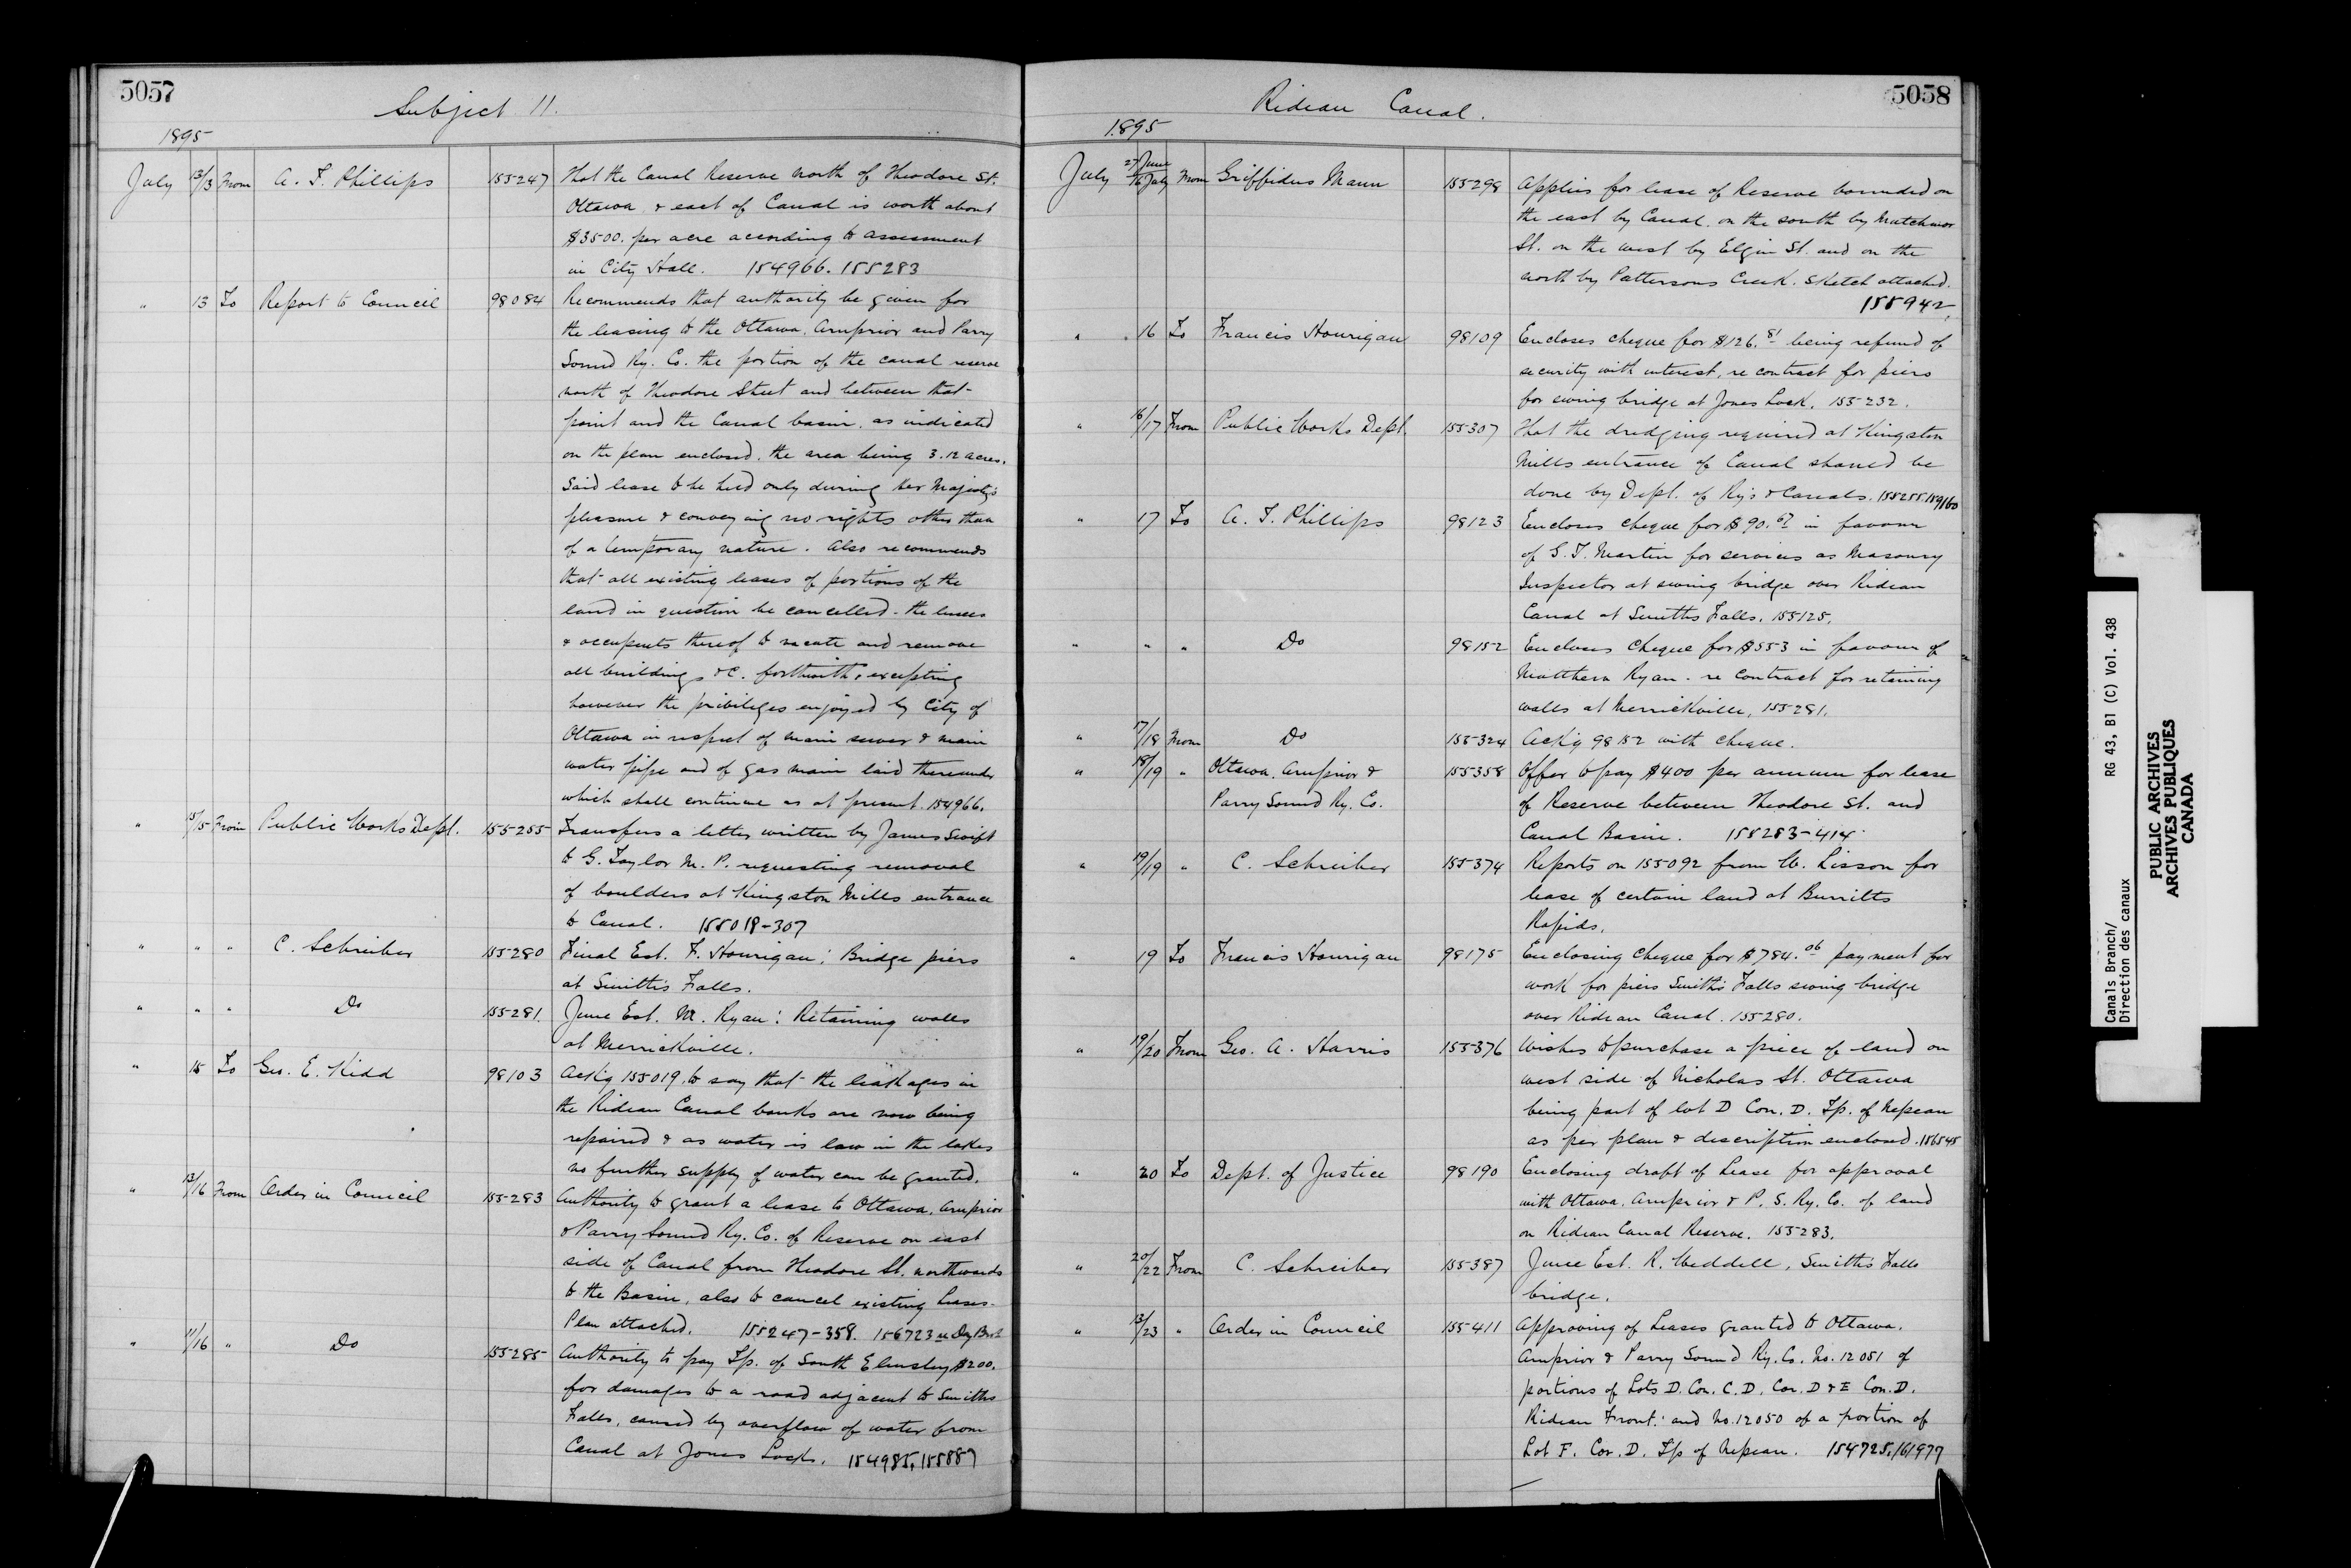 5057
Subject 11.
1895
July 13/13 From A. T. Phillips 155247 That the Canal Reserve north of Theodore St.
Ottawa & east of Canal is worth about
$3500. per acre according to assessment
in City Hall. 154966. 155283
" 13 To Report to Council 98084 Recommends that authority be given for
the leasing to the Ottawa, Arnprior and Parry
Sound Ry. Co. the portion of the canal reserve
north of Theodore Street and between that
point and the Canal basin, as indicated
on the plan enclosed, the area being 3.12 acres.
Said lease to be held only during Her Majesty's
pleasure & conveying no rights other than
of a temporary nature. Also recommends
that all existing leases of portions of the
land in question be cancelled - the lessees
& occupants thereof to vacate and remove
all buildings &c. forthwith, excepting
however the privileges enjoyed by City of
Ottawa in respect of main sewer & main
water pipe and of gas main laid thereunder
which shall continue as at present. 154966.
" 15/15 From Public Works Dept. 155255 Transfers a letter written by James Swift
to G. Taylor M. P. requesting removal
of boulders at Kingston Mills entrance
to Canal. 155018-307
" " " C. Schreiber 155280 Final Est. F. Hourigan; Bridge piers
at Smith's Falls.
" " " Do 155281. June Est. M. Ryan: Retaining walls
at Merrickville.
" 15 To Geo. E. Kidd 98103 Ackg 155019, to say that the leakages in
the Rideau Canal banks are now being
repaired & as water is low in the lakes
no further supply of water can be granted.
" 13/16 From Order in Council 155283 Authority to grant a lease to Ottawa, Arnprior
& Parry Sound Ry. Co. of Reserve on east
side of Canal from Theodore St. northwards
to the Basin, also to cancel existing leases.
Plan attached. 155247-358. 156723
" 11/16 " Do 155285 Authority to pay Tp. of South Elmsley $200.
for damages to a road adjacent to Smiths
Falls, caused by overflow of water from
Canal at Jones Locks. 154985, 155887
5058
Rideau Canal.
1895
July 27 June/16 July From Griffidus Mann 155298 Applies for lease of Reserve bounded on
the east by Canal, on the south by Mutchmor
St. on the west by Elgin St. and on the
north by Pattersons Creek. Sketch attached.
155942
" 16 To Francis Hourigan 98109 Encloses cheque for $126.81 being refund of
security with interest, re contract for piers
for swing bridge at Jones Lock. 155232.
" 16/17 From Public Works Dept. 155307 That the dredging required at Kingston
Mills entrance of Canal should be
done by Dept. of Ry's & Canals. 155255. 159160
" 17 To A. T. Phillips 98123 Encloses cheque for $90.67 in favour
of G. T. Martin for services as Masonry
Inspector at swing bridge over Rideau
Canal at Smiths Falls. 155125.
" " " Do 98152 Encloses Cheque for $553 in favour of
Matthew Ryan - re Contract for retaining
walls at Merrickville. 155281.
" 17/18 From Do 155324 Ackg 98152 with cheque.
" 18/19 " Ottawa, Arnprior & 155358 Offer to pay $400 per annum for lease
Parry Sound Ry. Co. of Reserve between Theodore St. and
Canal Basin. 155283-414
" 19/19 " C. Schreiber 155374 Reports on 155092 from W. Lisson for
lease of certain land at Burritts
Rapids.
" 19 To Francis Hourigan 98175 Enclosing cheque for $784.06 payment for
work for piers Smith's Falls swing bridge
over Rideau Canal. 155280.
" 19/20 From Geo. A. Harris 155376 Wishes to purchase a piece of land on
west side of Nicholas St. Ottawa
being part of lot D Con. D. Tp. of Nepean
as per plan & description enclosed. 156545
" 20 To Dept. of Justice 98190 Enclosing draft of Lease for approval
with Ottawa, Arnprior & P. S. Ry. Co. of land
on Rideau Canal Reserve. 155283.
" 20/22 From C. Schreiber 155387 June Est. R. Weddell, Smith's Falls
bridge.
" 13/23 " Order in Council 155411 Approving of Leases granted to Ottawa,
Arnprior & Parry Sound Ry. Co. No. 12051 of
portions of Lots D. Con. C. D, Con. D & E Con. D.
Rideau Front: and No. 12050 of a portion of
Lot F. Con. D. Tp of Nepean. 154725, 161977
Canals Branch/ RG 43, B1 (C) Vol. 438
Direction des canaux
PUBLIC ARCHIVES
ARCHIVES PUBLIQUES
CANADA